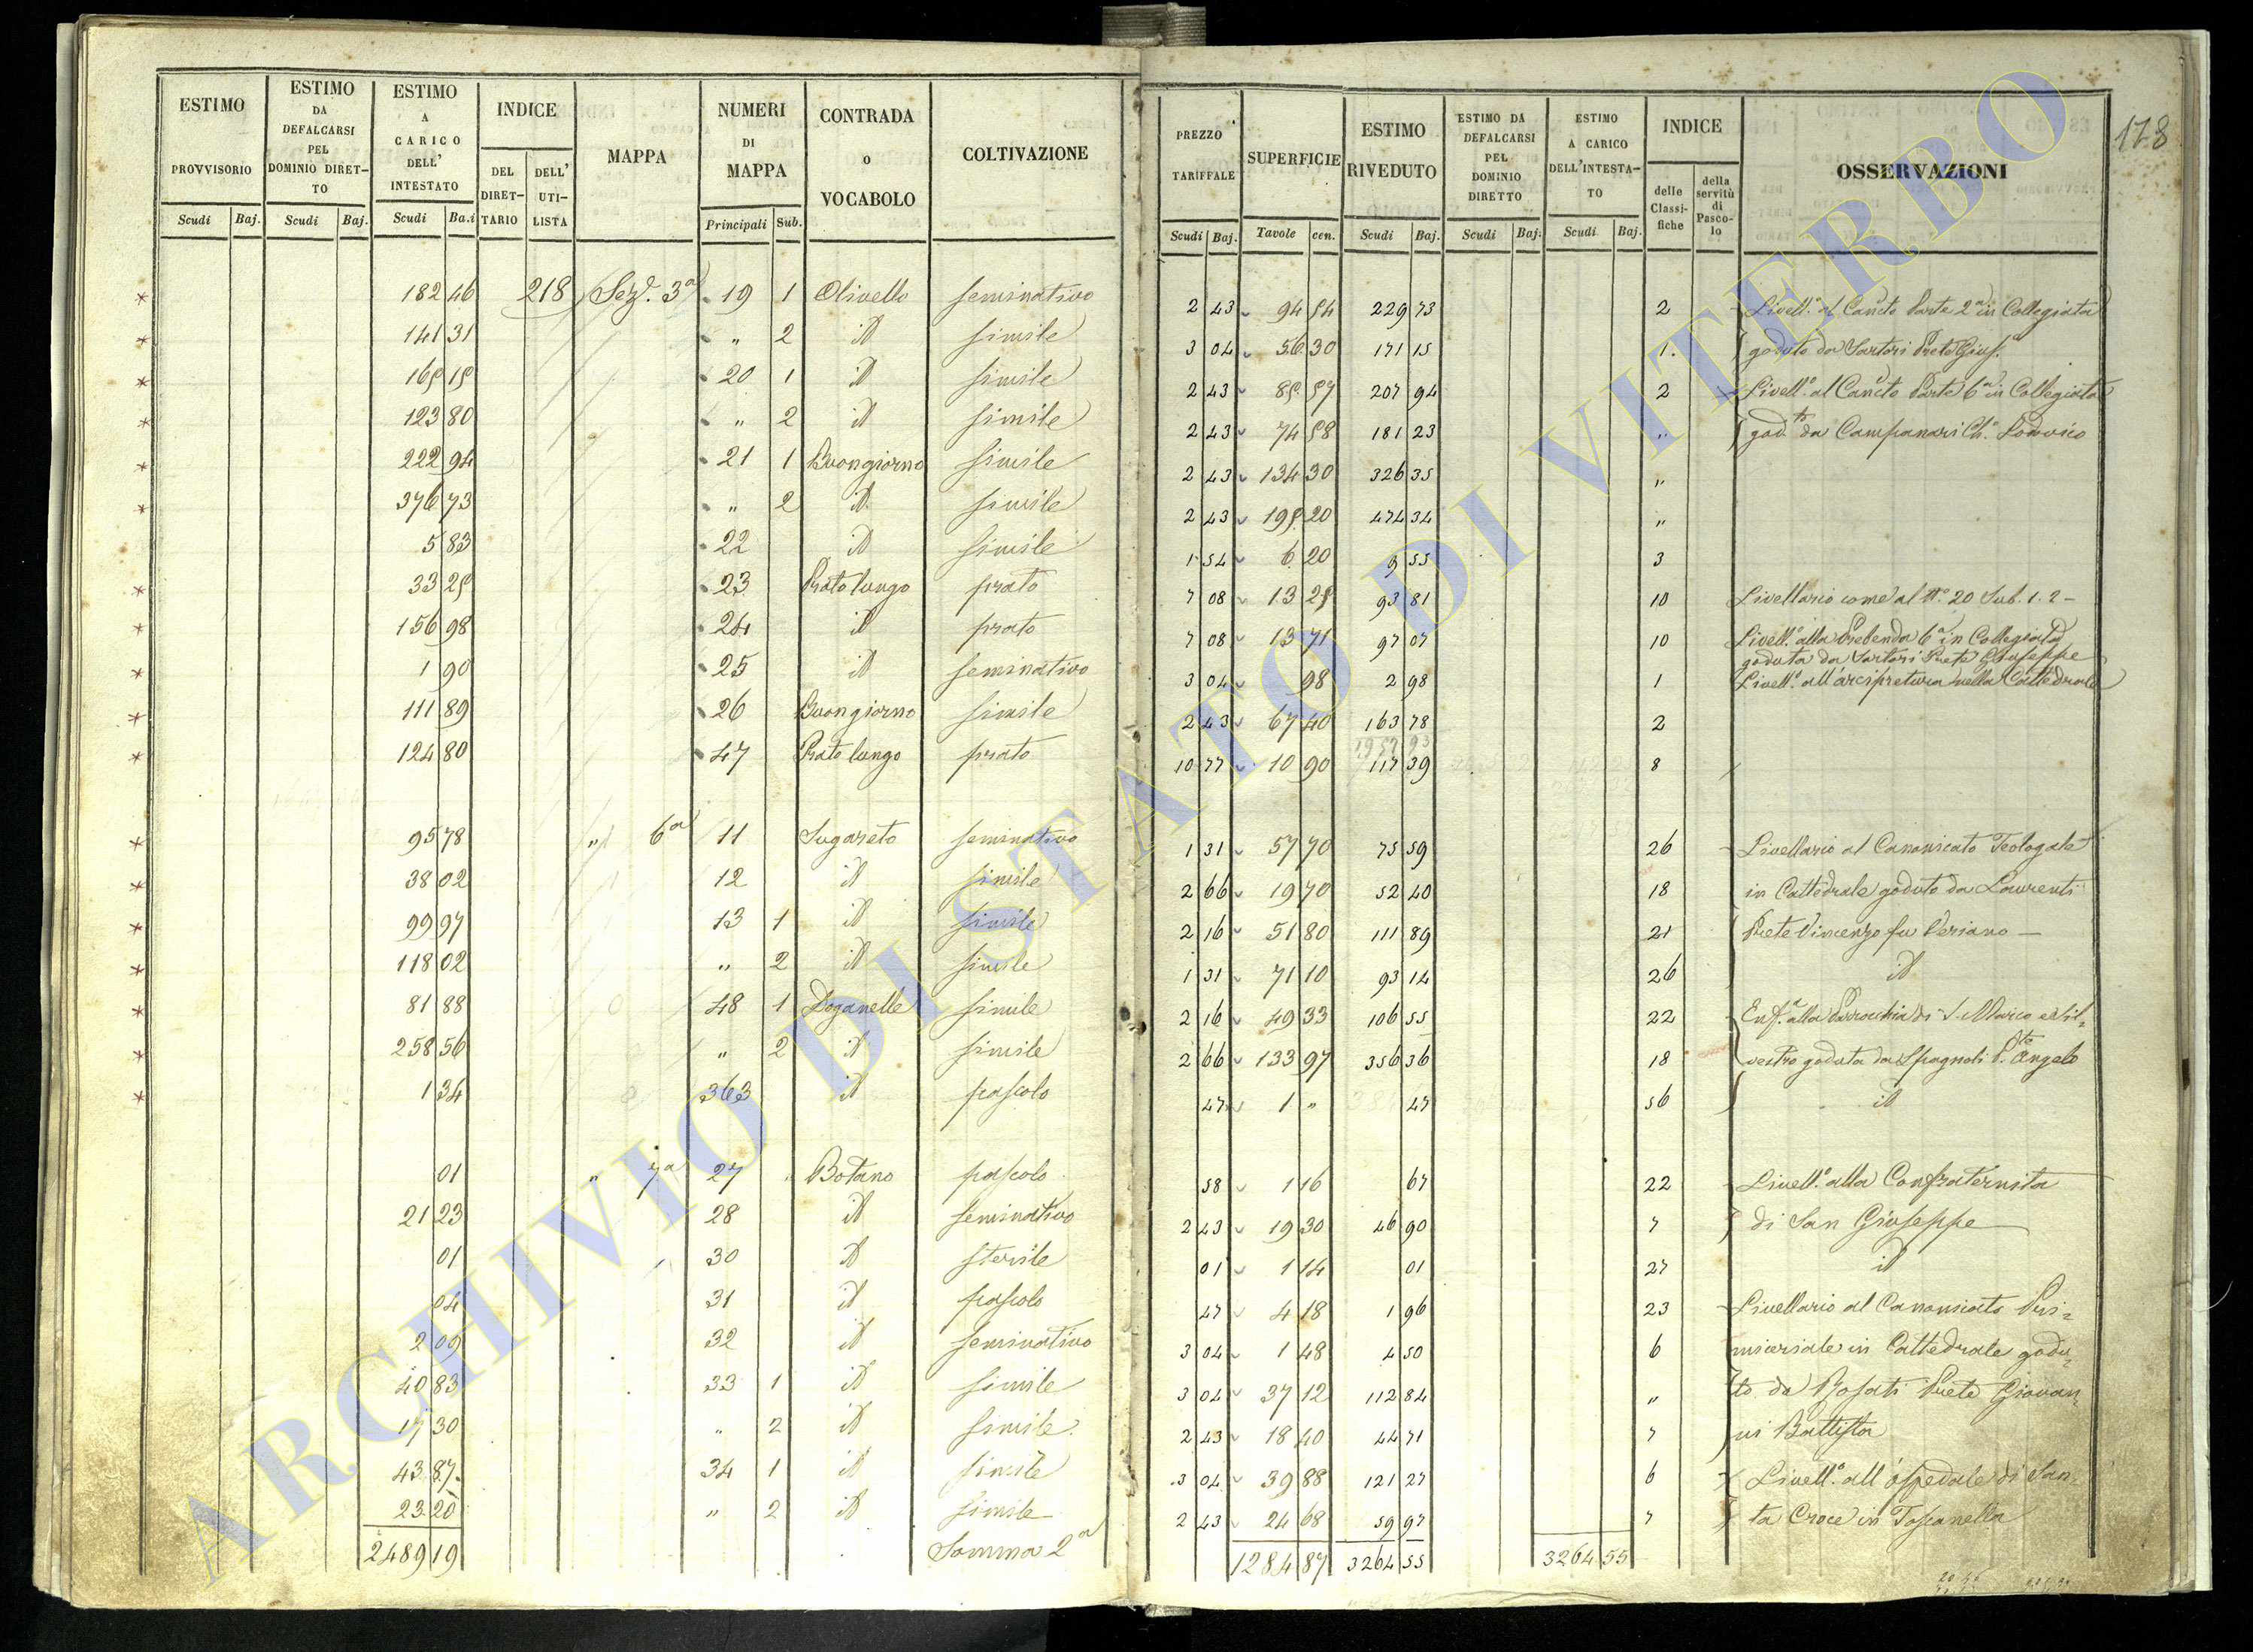 178
ESTIMO PROVVISORIO Scudi Baj.
ESTIMO DA DEFALCARSI PEL DOMINIO DIRET-TO Scudi Baj.
ESTIMO A CARICO DELL' INTESTATO Scudi Ba.i
INDICE DEL DIRET-TARIO DELL' UTI-LISTA
MAPPA
NUMERI DI MAPPA Principali Sub.
CONTRADA o VOCABOLO
COLTIVAZIONE
PREZZO TARIFFALE Scudi Baj.
SUPERFICIE Tavole cen.
ESTIMO RIVEDUTO Scudi Baj.
ESTIMO DA DEFALCARSI PEL DOMINIO DIRETTO Scudi Baj.
ESTIMO A CARICO DELL'INTESTA-TO Scudi Baj.
INDICE delle Classi-fiche della servitù di Pasco-lo
OSSERVAZIONI
182 46 218 Sez. 3a 19 1 Olivello seminativo 2 43 94 54 229 73 2 Livell.o al Cancto Parte 2a in Collegiata
141 31 " 2 id simile 3 04 56 30 171 15 1. goduto da Sartori Prete Gius.e
165 15 20 1 id simile 2 43 85 57 207 94 2 Livell.o al Cancto Parte 6a in Collegiata
123 80 " 2 id simile 2 43 74 58 181 23 " god.to da Campanari Ch.o Lodovico
222 94 21 1 Buongiorno simile 2 43 134 30 326 35 "
376 73 " 2 id simile 2 43 195 20 474 34 "
5 83 22 id simile 1 54 6 20 9 55 3
33 25 23 Prato lungo prato 7 08 13 25 93 81 10 Livellario come al N.o 20 Sub. 1. 2 -
156 98 24 id prato 7 08 13 71 97 07 10 Livell.o alla Prebenda 6a in Collegiata
goduta da Sartori Prete Giuseppe
1 90 25 id seminativo 3 04 98 2 98 1 Livell.o all'arcipretura nella Cattedrale
111 89 26 Buongiorno simile 2 43 67 40 163 78 2
1957 93
124 80 47 Prato lungo prato 10 77 10 90 117 39 8
95 78 " 6a 11 Sugareto seminativo 1 31 57 70 75 59 26 Livellario al Canonicato Teologale
38 02 12 id simile 2 66 19 70 52 40 18 in Cattedrale goduto da Laurenti
99 97 13 1 id simile 2 16 51 80 111 89 21 Prete Vincenzo fu Veriano
118 02 " 2 id simile 1 31 71 10 93 14 26 id
81 88 48 1 Doganelle simile 2 16 49 33 106 55 22 Enf.a alla Parrochia di S. Marco e Sil=
258 56 " 2 id simile 2 66 133 97 356 36 18 vestro goduta da Spagnoli P.te Angelo
1 34 363 id pascolo 47 1 " 47 56 id
01 " 7a 27 Botano pascolo 58 1 16 67 22 Livell.o alla Confraternita
21 23 28 id seminativo 2 43 19 30 46 90 7 di San Giuseppe
01 30 id sterile 01 1 14 01 27 id
04 31 id pascolo 47 4 18 1 96 23 Livellario al Canonicato Pri=
2 09 32 id seminativo 3 04 1 48 4 50 6 miceriale in Cattedrale godu=
40 83 33 1 id simile 3 04 37 12 112 84 " to da Rosati Prete Giovan=
17 30 " 2 id simile 2 43 18 40 44 71 7 ni Battista
43 87 34 1 id simile 3 04 39 88 121 27 6 Livell.o all'ospedale di San=
23 20 " 2 id simile 2 43 24 68 59 97 7 ta Croce in Toscanella
2489 19 Somma 2a 1284 87 3264 55 3264 55
ARCHIVIO DI STATO DI VITERBO